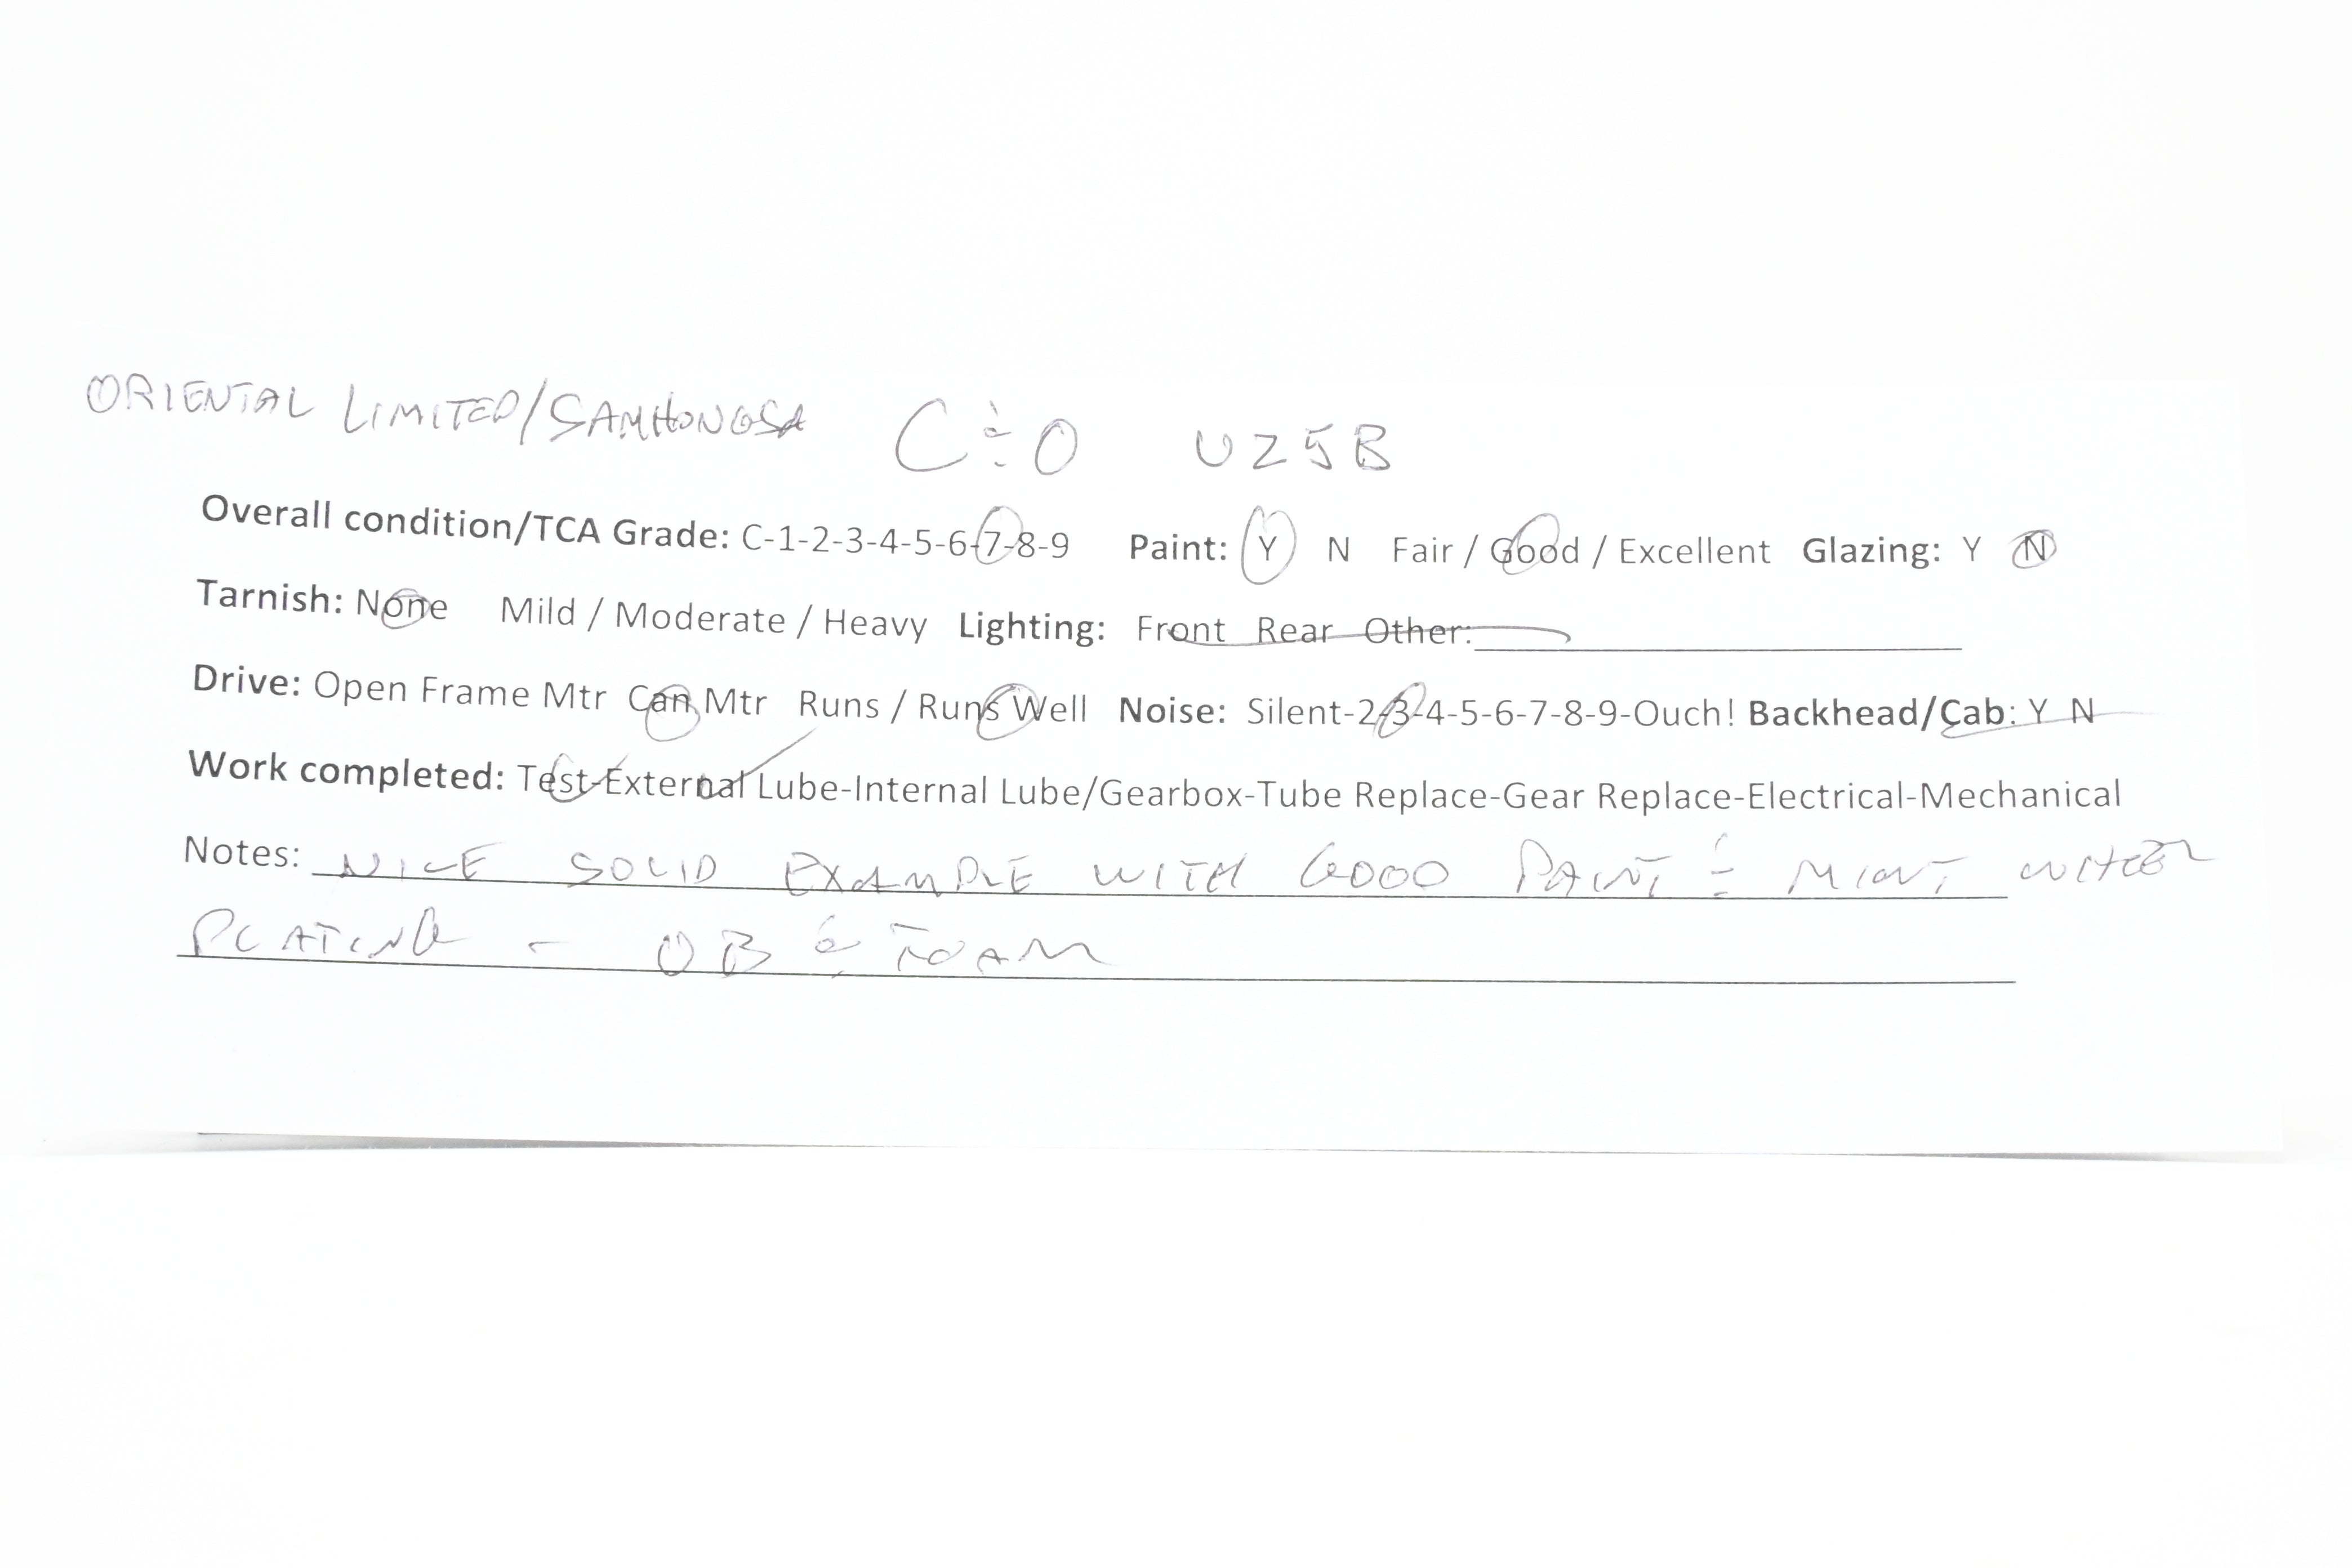 ORIENTAL LIMITED/SAMHONGSA C & O U25B
Overall condition/TCA Grade: C-1-2-3-4-5-6-7-8-9 Paint: Y N Fair / Good / Excellent Glazing: Y N
Tarnish: None Mild / Moderate / Heavy Lighting: Front Rear Other:
Drive: Open Frame Mtr Can Mtr Runs / Runs Well Noise: Silent-2-3-4-5-6-7-8-9-Ouch! Backhead/Cab: Y N
Work completed: Test-External Lube-Internal Lube/Gearbox-Tube Replace-Gear Replace-Electrical-Mechanical
Notes: NICE SOLID EXAMPLE WITH GOOD PAINT & MINT WHEEL
PLATING - OB & FOAM